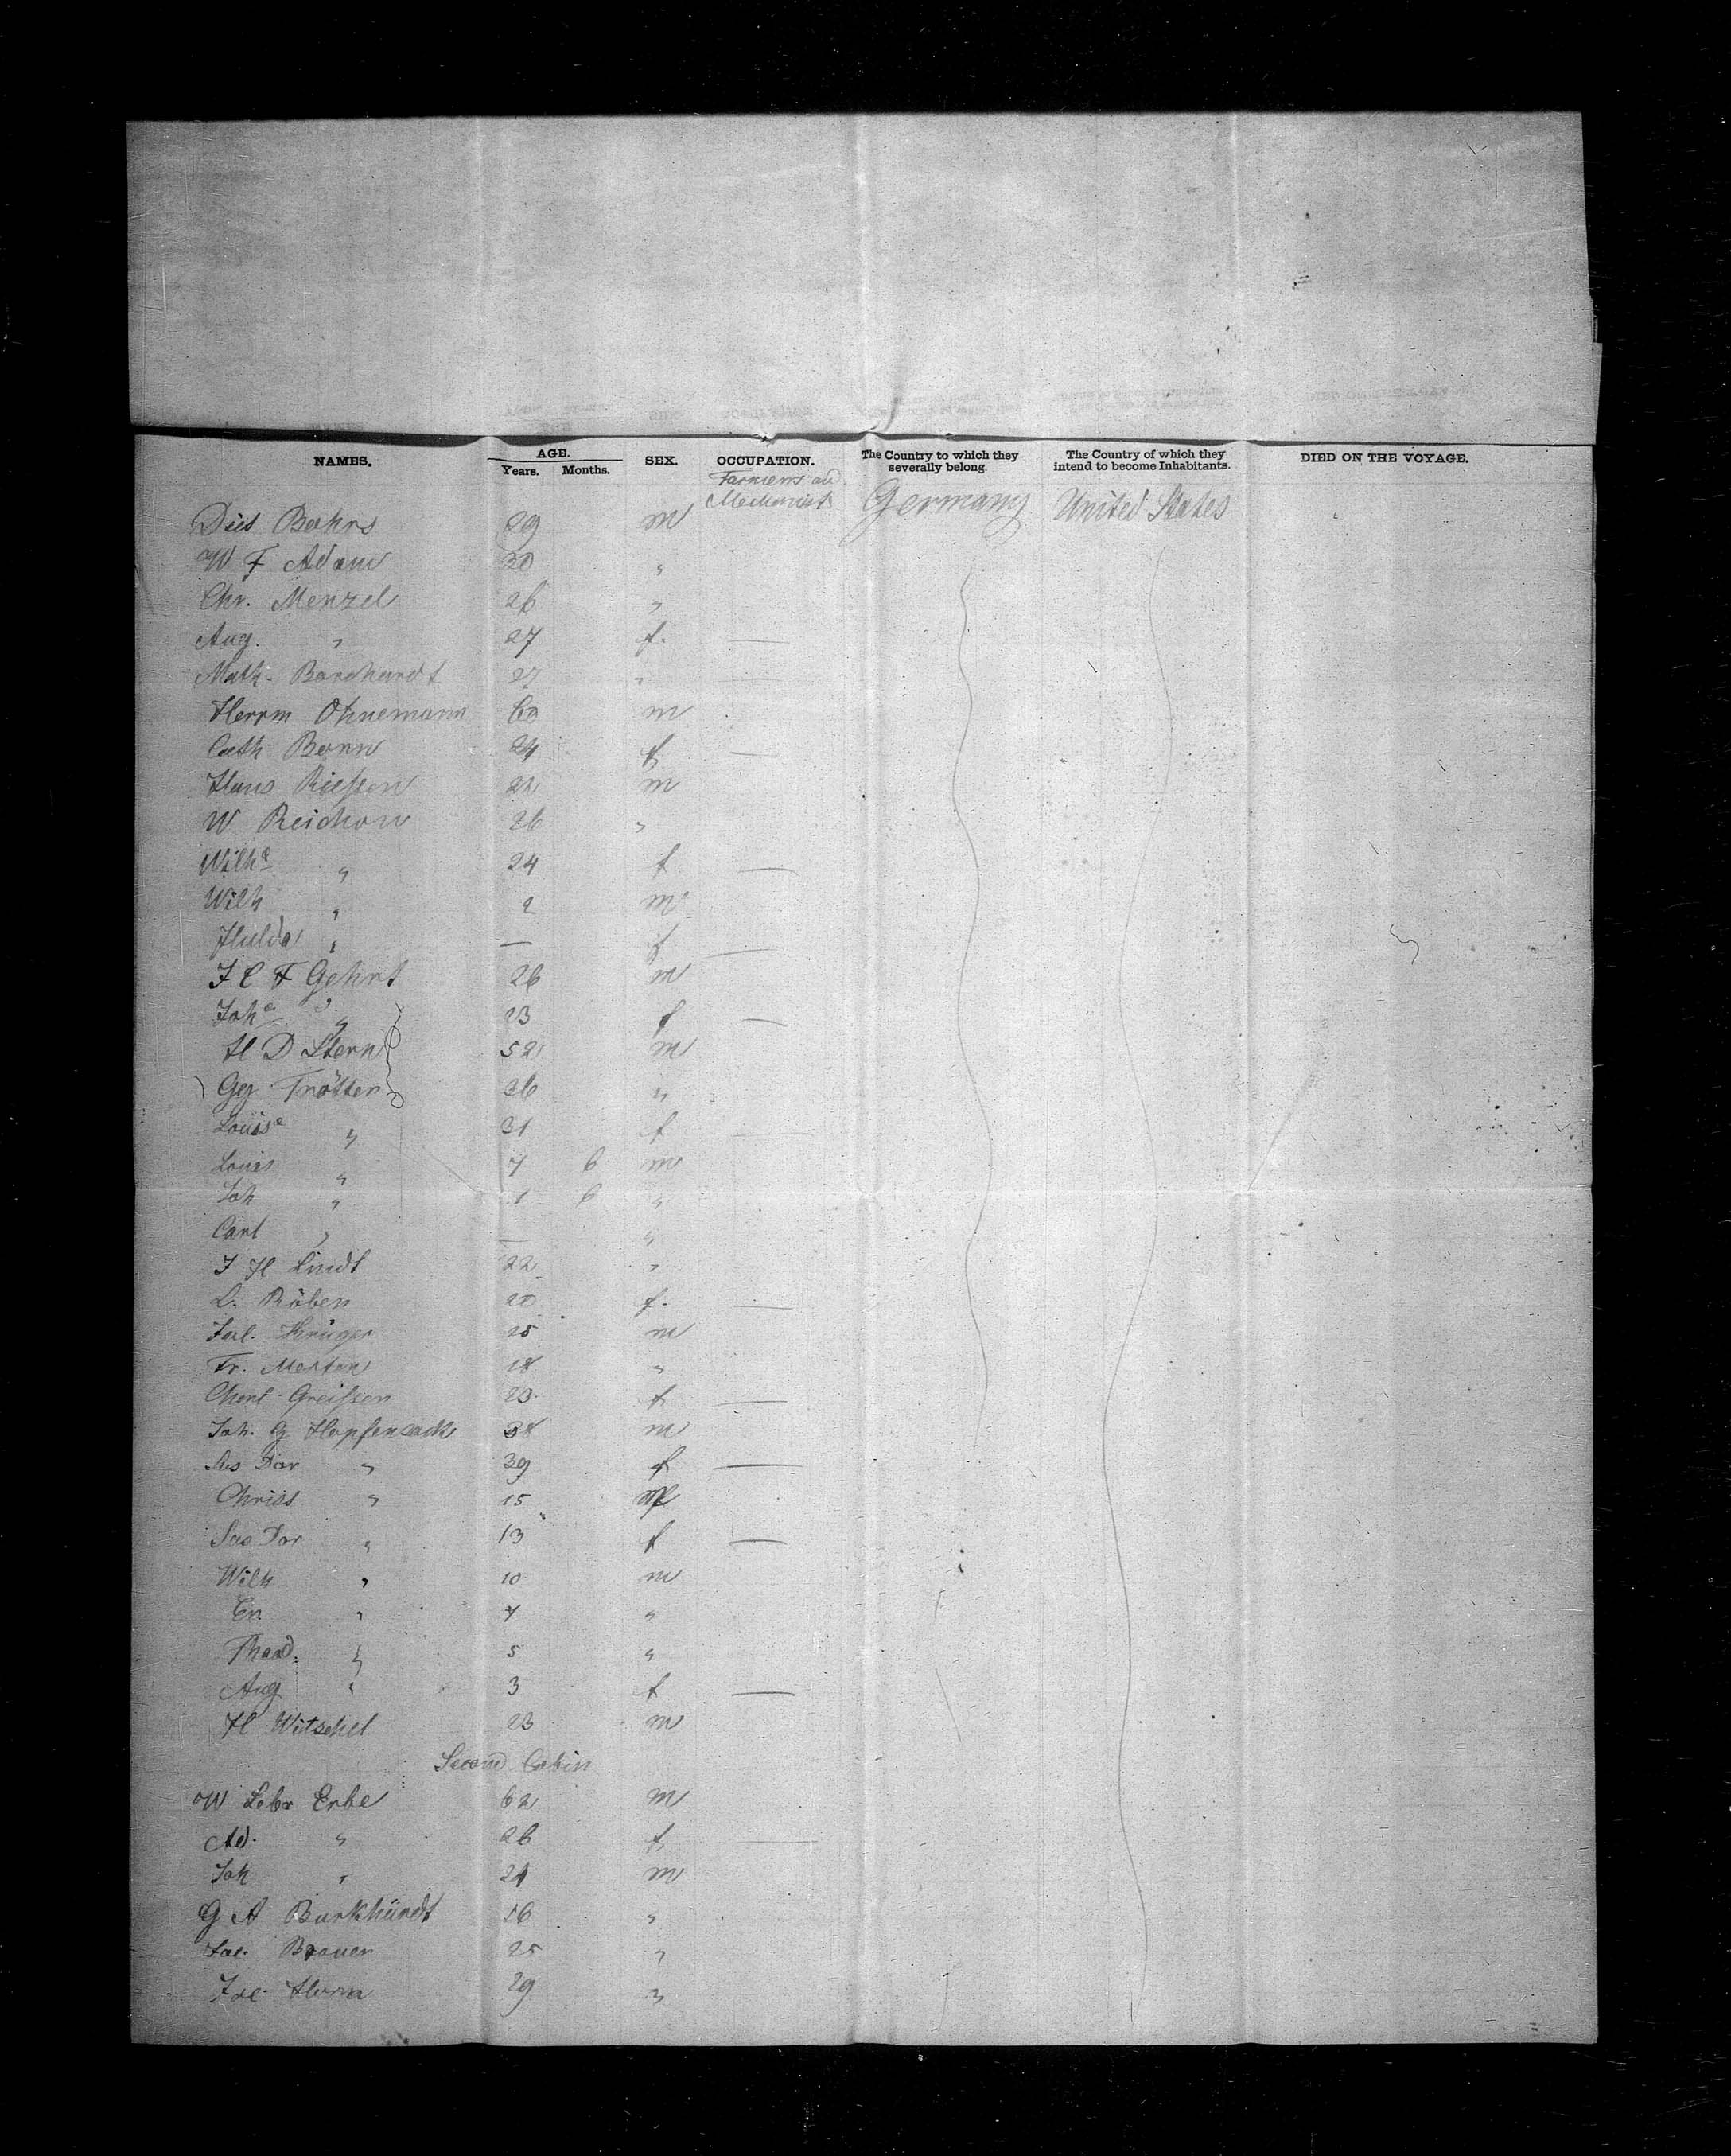 NAMES. AGE. Years. Months. SEX. OCCUPATION. The Country to which they severally belong. The Country of which they intend to become Inhabitants. DIED ON THE VOYAGE.
Farmers and Mechanics Germany United States
Bahrs 29 m
W F Adam 30 "
Chr. Menzel 26 "
Aug. " 27 f. —
Math. Borchardt 27 " —
Herrm Ohnemann 60 m
Cath Bonn 24 f —
Hans Rieſsen 22 m
W Reichow 26 "
Wilhe " 24 f —
Wilh " 2 m
Hulda " — f —
J C F Gehrt 26 m
Johe " 23 f —
H D Stern 52 m
Gg Trötter 36 "
Louise " 31 f —
Louis " 7 6 m
Joh " 1 6 "
Carl " — "
J H Lindt 22 "
D. Röben 20 f. —
Krüger 25 m
Fr. Merten 18 "
Greiſsen 23 f —
Joh. G Hopfensack 38 m
Sus Dor " 39 f —
Christ " 15 m
Sus Dor " 13 f —
Wilh " 10 m
Er. " 7 "
" 5 "
Aug " 3 f —
H Witschel 23 m
Second Cabin
W Lebr Erbe 62 m
Ad. " 26 f —
Joh " 24 m
G A Burkhürdt 16 "
Brauer 25 "
Horn 29 "